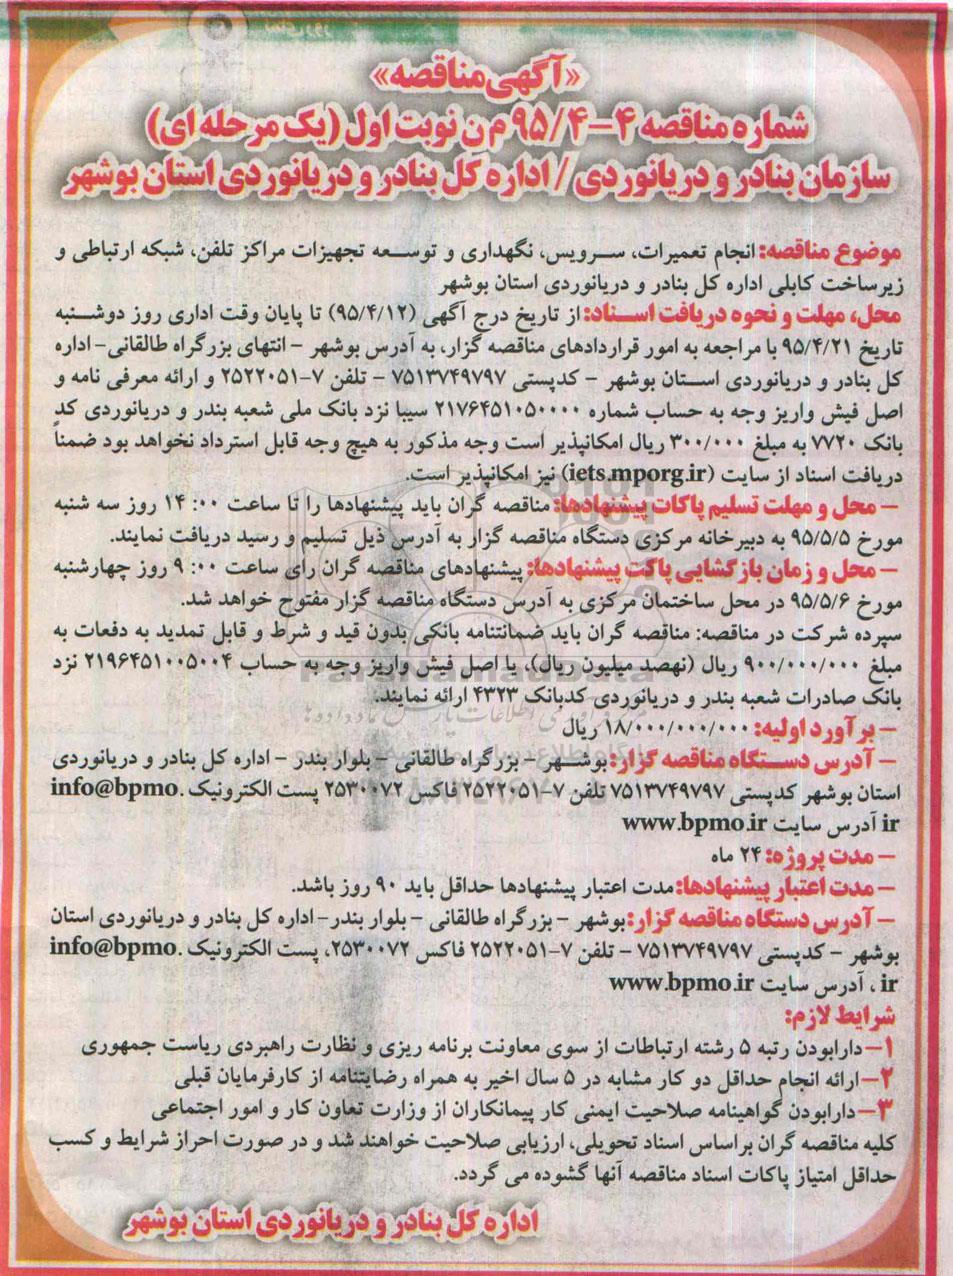 «آگهی مناقصه»
شماره مناقصه ۴-۹۵/۴ م ن نوبت اول (یک مرحله ای)
سازمان بنادر و دریانوردی / اداره کل بنادر و دریانوردی استان بوشهر
موضوع مناقصه: انجام تعمیرات، سرویس، نگهداری و توسعه تجهیزات مراکز تلفن، شبکه ارتباطی و
زیرساخت کابلی اداره کل بنادر و دریانوردی استان بوشهر
محل، مهلت و نحوه دریافت اسناد: از تاریخ درج آگهی (۹۵/۴/۱۲) تا پایان وقت اداری روز دوشنبه
تاریخ ۹۵/۴/۲۱ با مراجعه به امور قراردادهای مناقصه گزار، به آدرس بوشهر - انتهای بزرگراه طالقانی- اداره
کل بنادر و دریانوردی استان بوشهر - کدپستی ۷۵۱۳۷۴۹۷۹۷ - تلفن ۷-۲۵۲۲۰۵۱ و ارائه معرفی نامه و
اصل فیش واریز وجه به حساب شماره ۲۱۷۶۴۵۱۰۵۰۰۰۰ سیبا نزد بانک ملی شعبه بندر و دریانوردی کد
بانک ۷۷۲۰ به مبلغ ۳۰۰/۰۰۰ ریال امکانپذیر است وجه مذکور به هیچ وجه قابل استرداد نخواهد بود ضمناً
دریافت اسناد از سایت (iets.mporg.ir) نیز امکانپذیر است.
- محل و مهلت تسلیم پاکات پیشنهادها: مناقصه گران باید پیشنهادها را تا ساعت ۱۴:۰۰ روز سه شنبه
مورخ ۹۵/۵/۵ به دبیرخانه مرکزی دستگاه مناقصه گزار به آدرس ذیل تسلیم و رسید دریافت نمایند.
- محل و زمان بازگشایی پاکت پیشنهادها: پیشنهادهای مناقصه گران رأی ساعت ۹:۰۰ روز چهارشنبه
مورخ ۹۵/۵/۶ در محل ساختمان مرکزی به آدرس دستگاه مناقصه گزار مفتوح خواهد شد.
سپرده شرکت در مناقصه: مناقصه گران باید ضمانتنامه بانکی بدون قید و شرط و قابل تمدید به دفعات به
مبلغ ۹۰۰/۰۰۰/۰۰۰ ریال (نهصد میلیون ریال)، یا اصل فیش واریز وجه به حساب ۲۱۹۶۴۵۱۰۰۵۰۰۴ نزد
بانک صادرات شعبه بندر و دریانوردی کدبانک ۴۳۲۳ ارائه نمایند.
- برآورد اولیه: ۱۸/۰۰۰/۰۰۰/۰۰۰ ریال
- آدرس دستگاه مناقصه گزار: بوشهر - بزرگراه طالقانی - بلوار بندر - اداره کل بنادر و دریانوردی
استان بوشهر کدپستی ۷۵۱۳۷۴۹۷۹۷ تلفن ۷-۲۵۲۲۰۵۱ فاکس ۲۵۳۰۰۷۲ پست الکترونیک info@bpmo.
ir آدرس سایت www.bpmo.ir
- مدت پروژه: ۲۴ ماه
- مدت اعتبار پیشنهادها: مدت اعتبار پیشنهادها حداقل باید ۹۰ روز باشد.
- آدرس دستگاه مناقصه گزار: بوشهر - بزرگراه طالقانی - بلوار بندر- اداره کل بنادر و دریانوردی استان
بوشهر - کدپستی ۷۵۱۳۷۴۹۷۹۷ - تلفن ۷-۲۵۲۲۰۵۱ فاکس ۲۵۳۰۰۷۲، پست الکترونیک info@bpmo.
ir ، آدرس سایت www.bpmo.ir
شرایط لازم:
۱- دارابودن رتبه ۵ رشته ارتباطات از سوی معاونت برنامه ریزی و نظارت راهبردی ریاست جمهوری
۲- ارائه انجام حداقل دو کار مشابه در ۵ سال اخیر به همراه رضایتنامه از کارفرمایان قبلی
۳- دارابودن گواهینامه صلاحیت ایمنی کار پیمانکاران از وزارت تعاون کار و امور اجتماعی
کلیه مناقصه گران براساس اسناد تحویلی، ارزیابی صلاحیت خواهند شد و در صورت احراز شرایط و کسب
حداقل امتیاز پاکات اسناد مناقصه آنها گشوده می گردد.
اداره کل بنادر و دریانوردی استان بوشهر